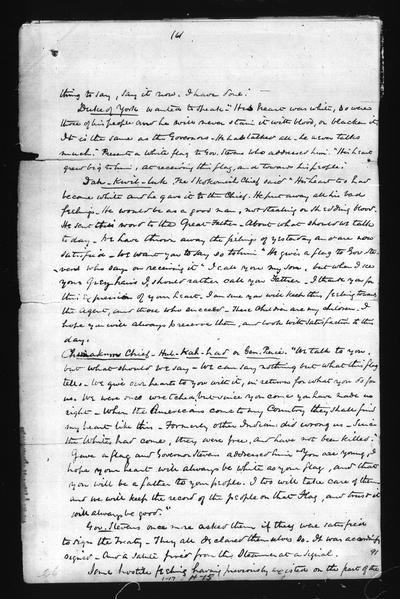 161
thing to say, say it now. I have done."
Duke of York wanted to speak. "His heart was white, so were
those of his people and he will never stain it with blood, or blacken it
It is the same as the Governors - He had talked all. he never talks
much." Presents a white flag to Gov. Stevens who addressed him. "His heart
grew big to him, at receiving this flag, and towards his people."
Dah-Kwil-luk, The Skokomish Chief said "His heart too had
become white and he gave it to the Chief. He put away all his bad
feelings. He would be as a good man, not stealing or shedding blood.
He sent this word to the Great Father. About what should we talk
to day. We have thrown away the feelings of yesterday and are now
satisfied. We want you to say so to him" He gives a flag to Gov Ste-
vens who says on receiving it "I call you my son, but when I see
your grey hairs I should rather call you Father. I thank you for
this expression of your heart. I am sure you will keep this feeling towards
the Agent, and those who succeed. These Children are my children. I
hope you will always preserve them, and look with satisfaction to this
day.
Chimakum Chief - Hul-Kah-had or Gen. Pierce. "We talk to you,
but what should we say - We can say nothing but what this flag
tells - We give our hearts to you with it, in return for what you do for
us. We were once wretched but since you come you have made us
right - When the Americans come to my Country they shall find
my heart like this - Formerly other Indians did wrong us. Since
the Whites had come, they were free, and have not been killed."
Gave a flag and Governor Stevens addressed him "You are young, I
hope your heart will always be white as your flag, and that
you will be a father to your people. I too will take care of them
and we will keep the record of the people on that Flag, and trust it
will always be good."
Gov. Stevens once more asked them if they were satisfied
to sign the Treaty - They all declared themselves so. It was accordingly
signed - And a Salute fired from the Steamer as a signal. 91
Some hostile feeling having previously existed on the part of the